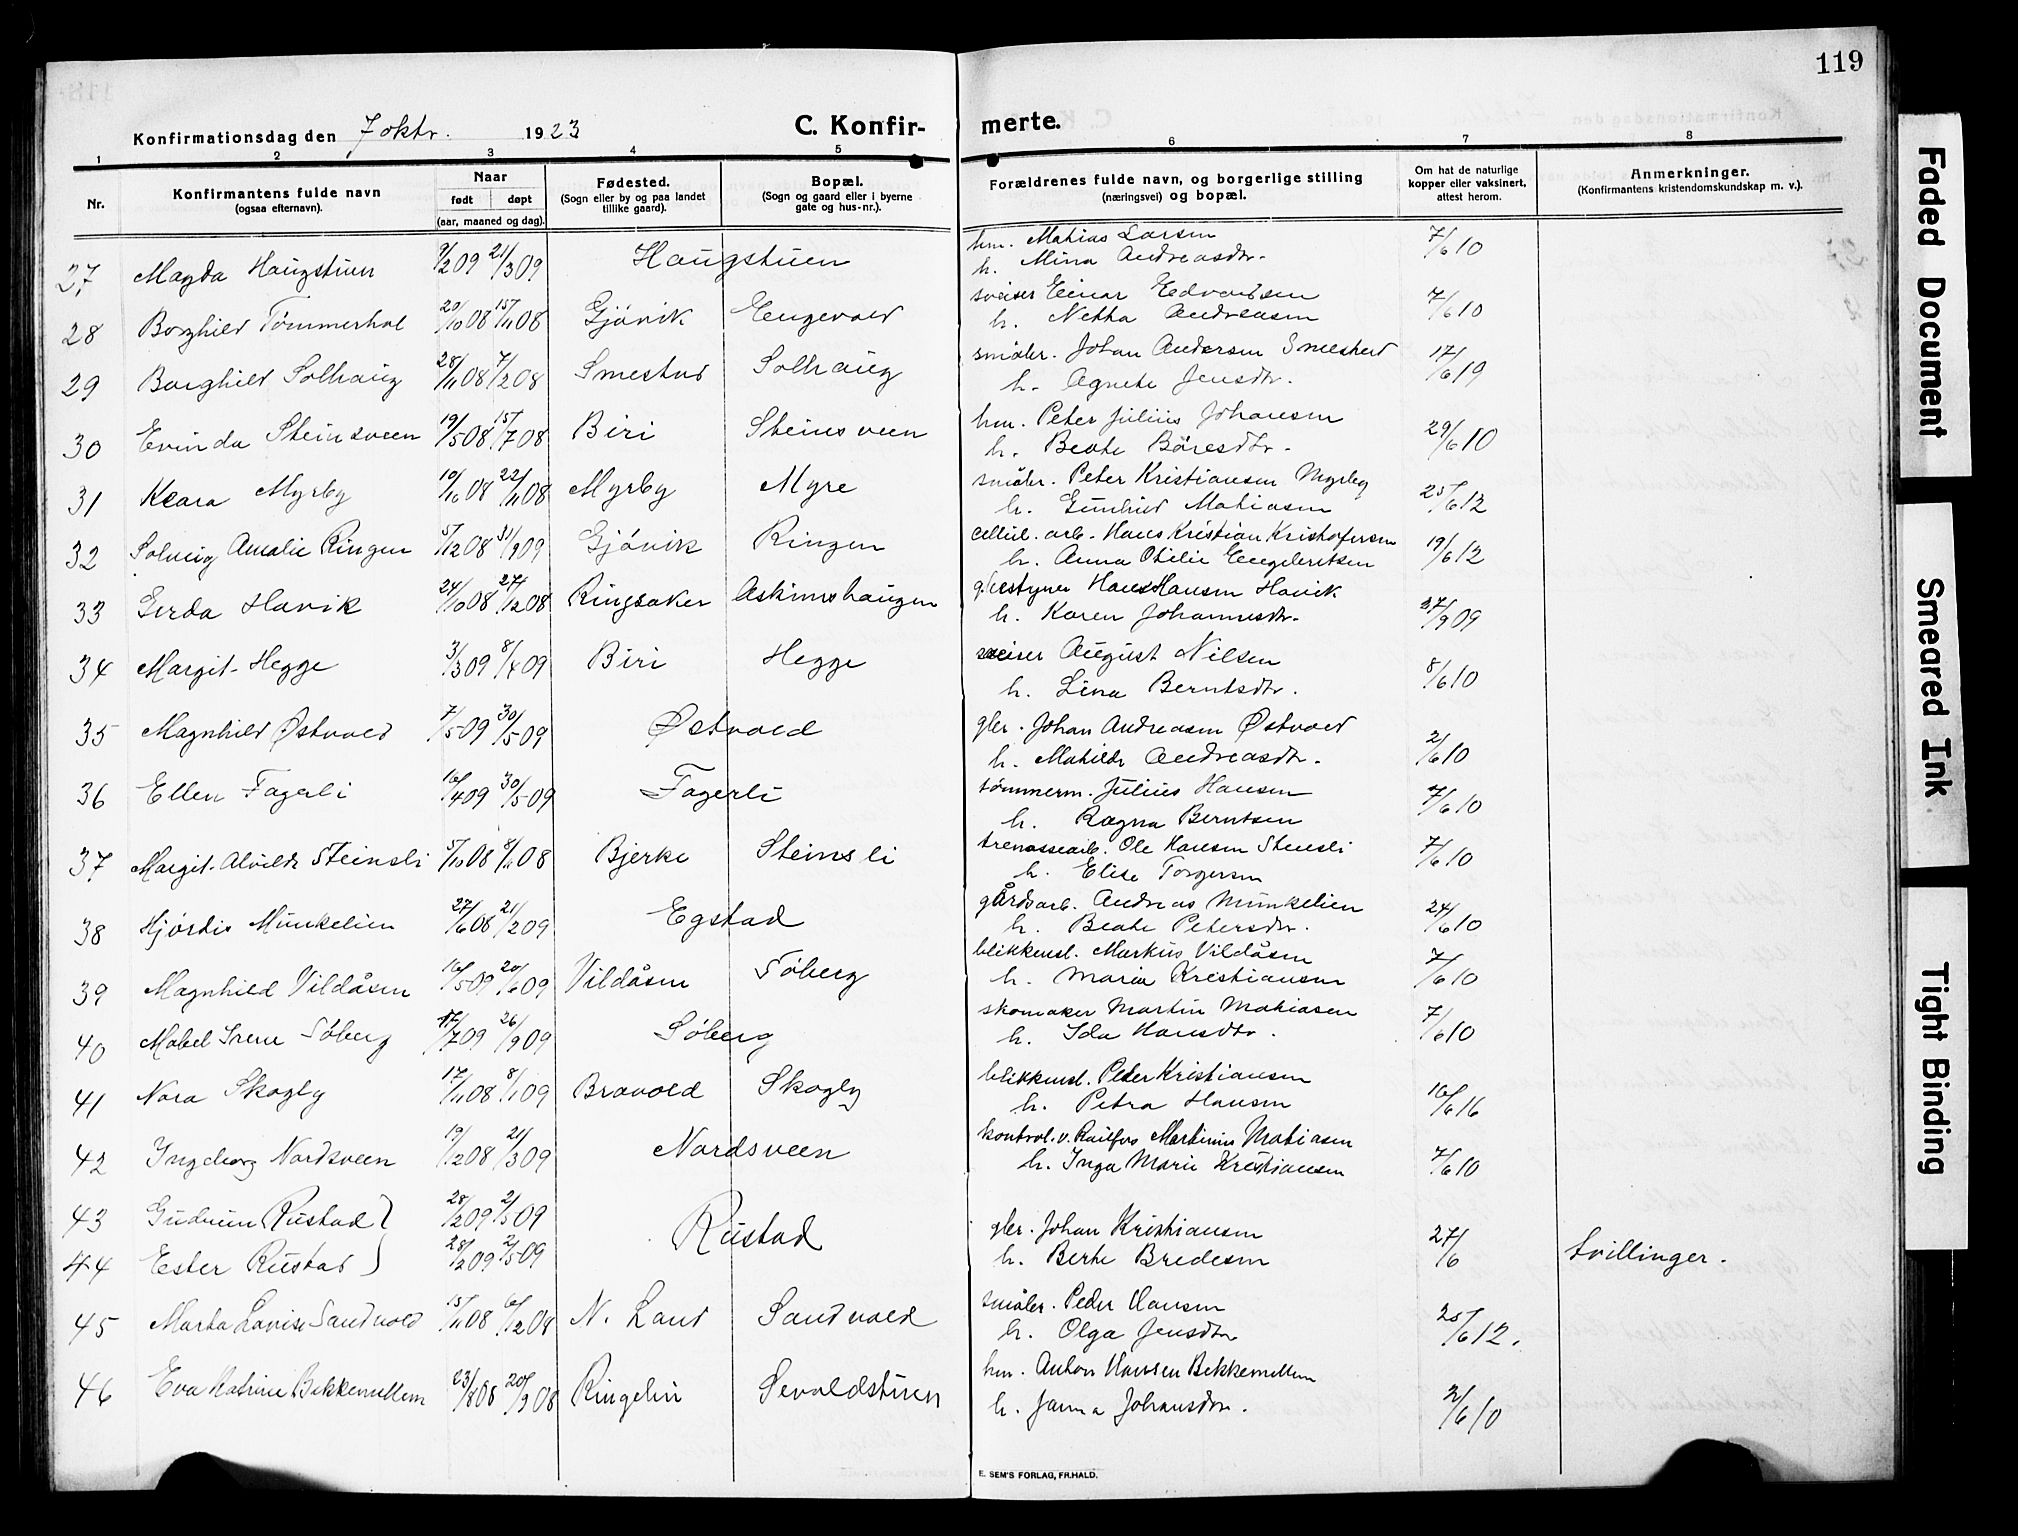 119
Konfirmationsdag den 7 oktr. 1923
C. Konfirmerte.
1 2 3 4 5 6 7 8
Nr.
Konfirmantens fulde navn
(ogsaa efternavn).
Naar
født døpt
(aar, maaned og dag).
Fødested.
(Sogn eller by og paa landet
tillike gaard).
Bopæl.
(Sogn og gaard eller i byerne
gate og hus-nr.).
Forældrenes fulde navn, og borgerlige stilling
(næringsvei) og bopæl.
Om hat de naturlige
kopper eller vaksinert,
attest herom.
Anmerkninger.
(Konfirmantens kristendomskundskap m. v.).
27 Magda Haugstuen 9/2 09 21/3 09 Haugstuen hm. Matias Larsen 7/6 10
h. Mina Andreasdtr.
28 Borghild Tømmerhol 20/10 08 15/11 08 Gjövik Engevold sveiser Einar Edvardsen 7/6 10
h. Netta Andreasen
29 Borghild Solhaug 28/11 08 7/2 08 Smestad Solhaug småbr. Johan Andersen Smeshed 17/6 19
h. Agnete Jensdtr.
30 Evinda Steinsveen 19/5 08 15/7 08 Biri Steinsveen hm. Peter Julius Johansen 29/6 10
h. Beate Böresdtr.
31 Klara Myrby 10/10 08 22/11 08 Myrby Myre småbr. Peter Kristiansen Myrby 25/6 12
h. Gunhild Matiasen
32 Solveig Amalie Ringen 5/12 08 31/9 09 Gjövik Ringen cellul. arb. Hans Kristian Kristofersen 19/6 12
h. Anna Otilie Engebretsen
33 Gerda Havik 24/10 08 27/12 08 Ringsaker Askimshaugen g.bestyrer Hans Hansen Havik 27/9 09
h. Karen Johannesdtr.
34 Margit Hegge 3/3 09 8/4 09 Biri Hegge sveiser August Nilsen 8/6 10
h. Lina Berntsdtr.
35 Magnhild Østvold 7/5 09 30/5 09 Østvold gbr. Johan Andreasen Østvold 2/6 10
h. Matilde Andreasdtr.
36 Ellen Fagerli 16/4 09 30/5 09 Fagerli tømmerm. Julius Hansen 7/6 10
h. Ragna Berntsen
37 Margit Alvilde Steinsli 5/10 08 8/11 08 Bjerke Steinsli trenassearb. Ole Hansen Stensli 7/6 10
h. Elise Torgersen
38 Hjördis Munkelien 27/6 08 21/2 09 Egstad gårdsarb. Andreas Munkelien 24/6 10
h. Beate Petersdtr.
39 Magnhild Vildåsen 16/5 09 20/6 09 Vildåsen Söberg blikkensl. Markus Vildåsen 7/6 10
h. Maria Kristiansen
40 Mabel Irene Söberg 17/7 09 26/9 09 Söberg skomaker Martin Matiasen 7/6 10
h. Ida Hansdtr.
41 Nora Skogly 17/11 08 8/1 09 Bravold Skogly blikkensl. Peder Kristiansen 16/6 16
h. Petra Hansen
42 Ingeborg Nordsveen 19/12 08 21/3 09 Nordsveen kontrol. v. Raufos Martinus Matiasen 7/6 10
h. Inga Marie Kristiansen
43 Gudrun Rustad 28/2 09 2/5 09 Rustad gbr. Johan Kristiansen 27/6 tvillinger.
44 Ester Rustad 28/2 09 2/5 09 h. Berte Bredesen
45 Marta Lovise Sandvold 15/11 08 6/12 08 N. Land Sandvold småbr. Peder Hansen 25/6 12.
h. Olga Jensdtr
46 Eva Katrine Bekkemellem 23/8 08 20/9 08 Ringelin Sevaldstuen hm. Anton Hansen Bekkemellem 2/6 10
h. Janna Johansdtr.
E. SEM'S FORLAG, FR.HALD.
Faded Document
Smeared Ink
Tight Binding